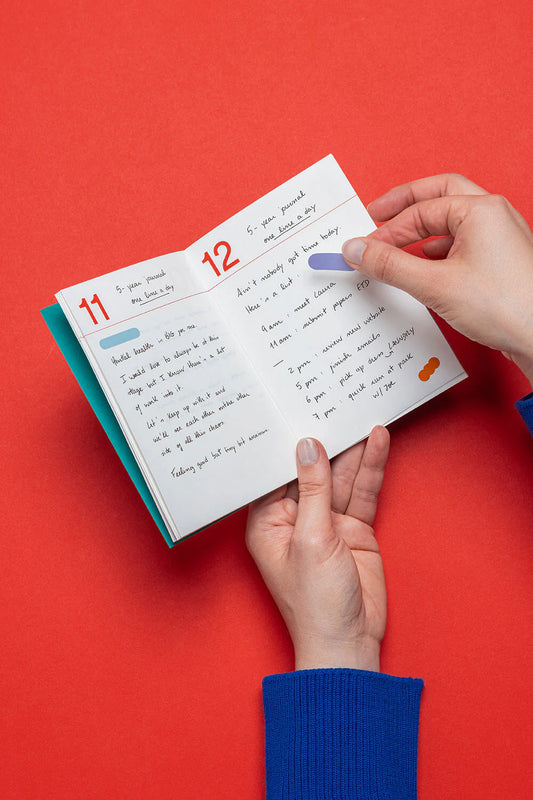 11
5-year journal
one line a day
Mental health is BIG for me
I would love to always be at this
stage but I know there's a lot
of work into it.
Let's keep up with it and
we'll see each other on the other
side of all this chaos.
Feeling good but tiny bit anxious.
12
5-year journal
one line a day
Ain't nobody got time today.
Here's a list.
9 am: meet Laura
11 am: submit papers EFD
2 pm: review new website
5 pm: finish emails
6 pm: pick up dress LAUNDRY
7 pm: quick run at park
w/ Joe